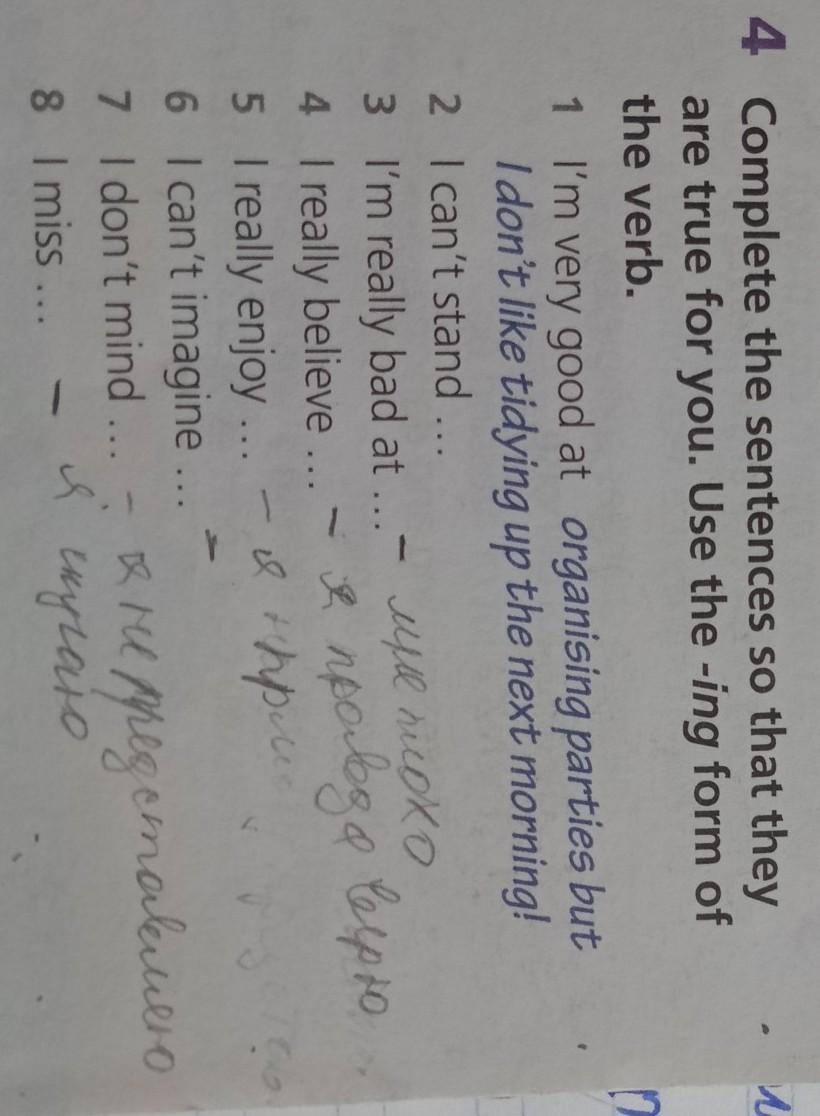 4 Complete the sentences so that they
are true for you. Use the -ing form of
the verb.
1 I'm very good at organising parties but
I don't like tidying up the next morning!
2 I can't stand ...
3 I'm really bad at ... –
4 I really believe ... – я правда верю
5 I really enjoy ... – я
6 I can't imagine ... –
7 I don't mind ... – я не представляю
8 I miss ... – я скучаю